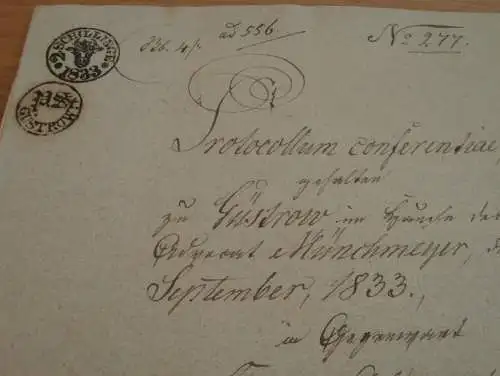 2 SCHILLINGE 1833
GUSTROW
ad 556.
No 277.
Protocollum conferentiae
gehalten
zu Güstrow im Hause des
Advocat Münchmeyer, d
September, 1833.,
in Gegenwart